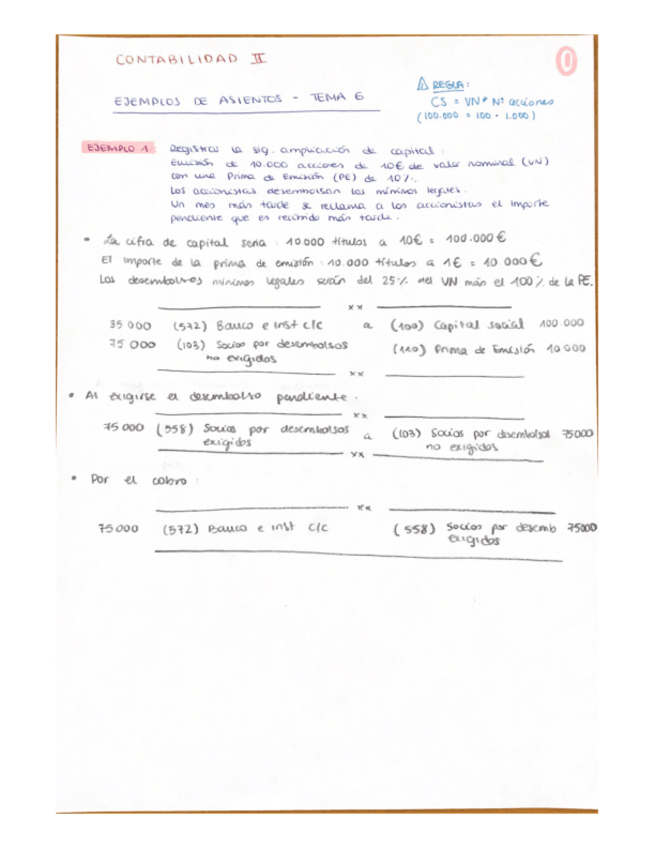 CONTABILIDAD II
0
EJEMPLOS DE ASIENTOS - TEMA 6
⚠ REGLA:
CS = VN * Nº acciones
(100.000 = 100 · 1.000)
EJEMPLO 1 Registrar la sig. ampliación de capital:
Emisión de 10.000 acciones de 10€ de valor nominal (VN)
con una Prima de Emisión (PE) de 10%.
Los accionistas desembolsan los mínimos legales.
Un mes más tarde se reclama a los accionistas el importe
pendiente que es recibido más tarde.
• La cifra de capital sería: 10.000 títulos a 10€ = 100.000€
El importe de la prima de emisión: 10.000 títulos a 1€ = 10.000€
Los desembolsos mínimos legales serán del 25% del VN más el 100% de la PE.
xx
35 000 (572) Banco e inst c/c a (100) Capital social 100 000
75 000 (103) Socios por desembolsos (110) Prima de Emisión 10 000
no exigidos
xx
• Al exigirse el desembolso pendiente:
xx
75 000 (558) Socios por desembolsos a (103) Socios por desembolsos 75000
exigidos no exigidos
xx
• Por el cobro:
xx
75 000 (572) Banco e inst c/c (558) Socios por desemb 75000
exigidos